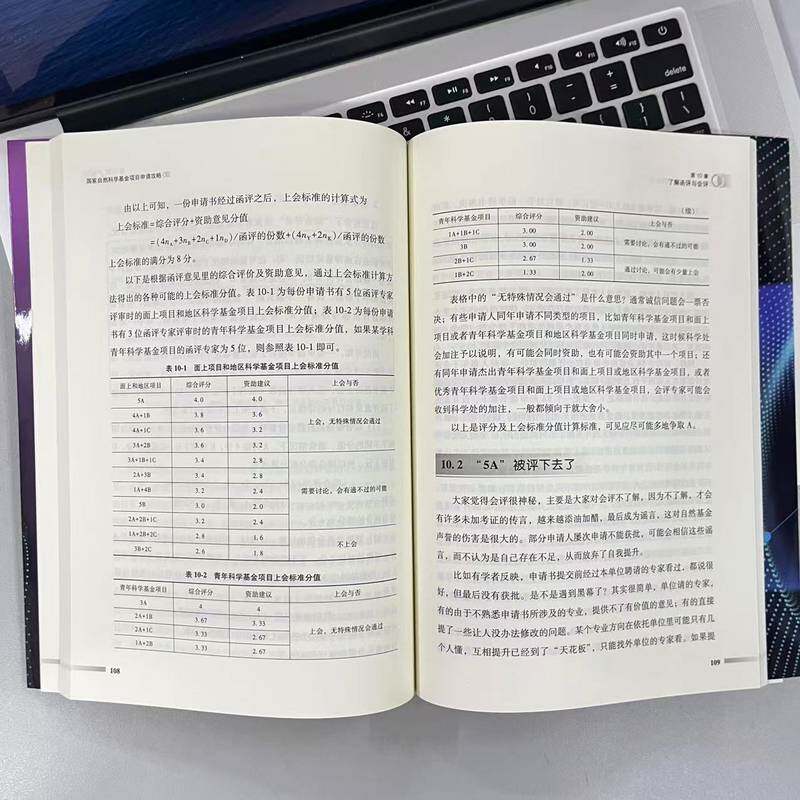 国家自然科学基金项目申请攻略
由以上可知，一份申请书经过函评之后，上会标准的计算式为
上会标准=综合评分+资助意见分值
=(4nA+3nB+2nC+1nD)/函评的份数+(4nY+2nR)/函评的份数
上会标准的满分为8分。
以下是根据函评意见里的综合评价及资助意见，通过上会标准计算方
法得出的各种可能的上会标准分值。表10-1为每份申请书有5位函评专家
评审时的面上项目和地区科学基金项目上会标准分值；表10-2为每份申请
书有3位函评专家评审时的青年科学基金项目上会标准分值，如果某学科
青年科学基金项目的函评专家为5位，则参照表10-1即可。
表10-1 面上项目和地区科学基金项目上会标准分值
面上和地区项目 综合评分 资助建议 上会与否
5A 4.0 4.0
4A+1B 3.8 3.6
4A+1C 3.6 3.2 上会，无特殊情况会通过
3A+2B 3.6 3.2
3A+1B+1C 3.4 2.8
2A+3B 3.4 2.8
1A+4B 3.2 2.4 需要讨论，会有通不过的可能
5B 3.0 2.0
2A+2B+1C 3.2 2.4
1A+2B+2C 2.8 1.6 不上会
3B+2C 2.6 1.8
表10-2 青年科学基金项目上会标准分值
青年科学基金项目 综合评分 资助建议 上会与否
3A 4 4
2A+1B 3.67 3.33
2A+1C 3.33 2.67 上会，无特殊情况会通过
1A+2B 3.33 2.67
108
第10章
了解函评与会评
（续）
青年科学基金项目 综合评分 资助建议 上会与否
1A+1B+1C 3.00 2.00
3B 3.00 2.00 需要讨论，会有通不过的可能
2B+1C 2.67 1.33
1B+2C 1.33 2.00 通过讨论，可能会有少量上会
表格中的“无特殊情况会通过”是什么意思？通常诚信问题会一票否
决；有些申请人同年申请不同类型的项目，比如青年科学基金项目和面上
项目或者青年科学基金项目和地区科学基金项目同时申请，这时候科学处
会加注予以说明，有可能会同时资助，也有可能会资助其中一个项目；还
有同年申请杰出青年科学基金项目和面上项目或地区科学基金项目，或者
优秀青年科学基金项目和面上项目或地区科学基金项目，会评专家可能会
收到科学处的加注，一般都倾向于就大舍小。
以上是评分及上会标准分值计算标准，可见应尽可能多地争取A。
10.2 “5A”被评下去了
大家觉得会评很神秘，主要是大家对会评不了解，因为不了解，才会
有许多未加考证的传言，越来越添油加醋，最后成为谣言，这对自然基金
声誉的伤害是很大的。部分申请人屡次申请不能获批，可能会相信这些谣
言，而不认为是自己存在不足，从而放弃了自我提升。
比如有学者反映，申请书提交前经过本单位聘请的专家看过，都说很
好，但最后没有获批。是不是遇到黑幕了？其实很简单，单位请的专家，
有的由于不熟悉申请书所涉及的专业，提供不了有价值的意见；有的直接
提了一些让人没办法修改的问题。某个专业方向在依托单位里可能只有几
个人懂，互相提升已经到了“天花板”，只能找外单位的专家看。如果提
109
F6
F7
F8
F9
F10
F11
F12
delete